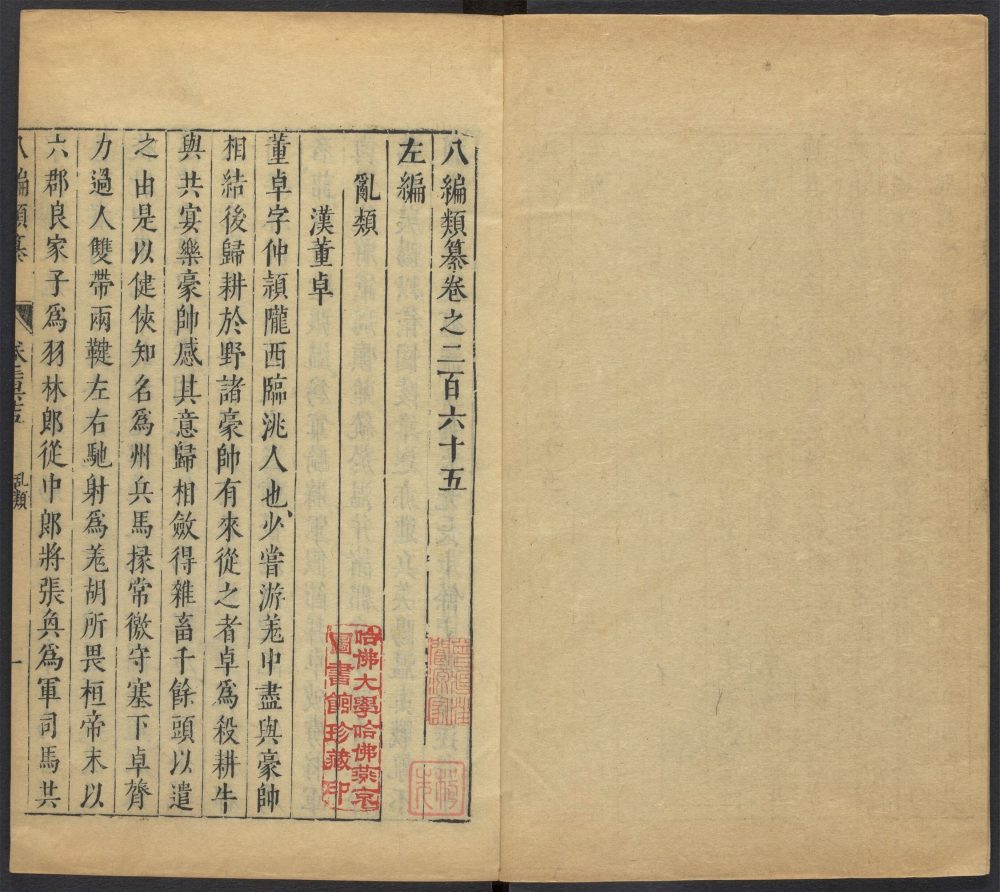 八編類纂卷之二百六十五
左編
亂類
漢董卓
董卓字仲穎隴西臨洮人也少嘗游羗中盡與豪帥
相結後歸耕於野諸豪帥有來從之者卓為殺耕牛
與共宴樂豪帥感其意歸相斂得雜畜千餘頭以遣
之由是以健俠知名爲州兵馬掾常徼守塞下卓膂
力過人雙帶兩鞬左右馳射爲羗胡所畏桓帝末以
六郡良家子爲羽林郎從中郎將張奐爲軍司馬共
八編類纂
亂類
一
哈佛大學哈佛燕京
圖書館珍藏印